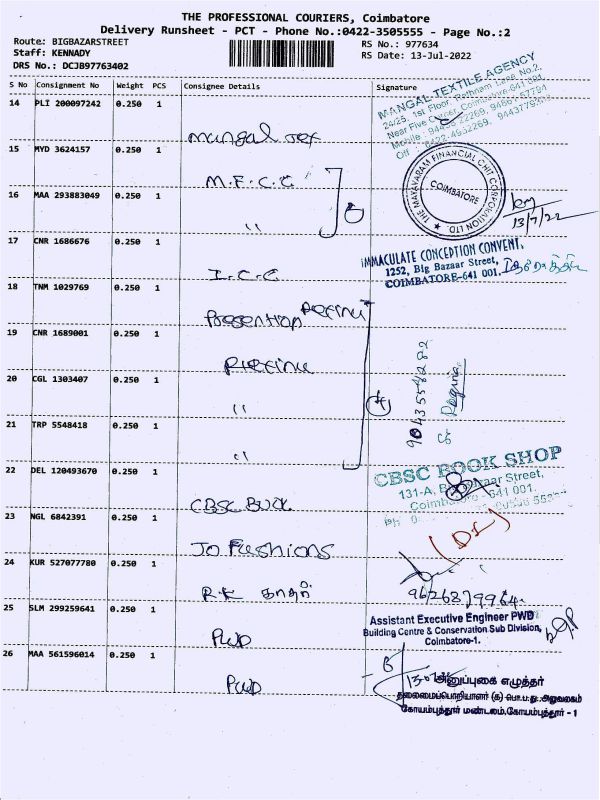 THE PROFESSIONAL COURIERS, Coimbatore
Delivery Runsheet - PCT - Phone No.:0422-3505555 - Page No.:2
Route: BIGBAZARSTREET
Staff: KENNADY
DRS No.: DCJB97763402
RS No.: 977634
RS Date: 13-Jul-2022
S No Consignment No Weight PCS Consignee Details Signature
14 PLI 200097242 0.250 1 Mangal Tex
MANGAL TEXTILE AGENCY
15 MYD 3624157 0.250 1 M.F.C.C
16 MAA 293883049 0.250 1 "
THE MAYAVARAM FINANCIAL CHIT CORPORATION LTD.
COIMBATORE
13/7/22
17 CNR 1686676 0.250 1 I.C.C
IMMACULATE CONCEPTION CONVENT,
1252, Big Bazaar Street,
COIMBATORE-641 001.
18 TNM 1029769 0.250 1
19 CNR 1689001 0.250 1
20 CGL 1303407 0.250 1 "
21 TRP 5548418 0.250 1 "
4
22 DEL 120493670 0.250 1 CBSC Book
CBSC BOOK SHOP
23 NGL 6842391 0.250 1 Jo Fashions
24 KUR 527077780 0.250 1 R.K
9626879964
25 SLM 299259641 0.250 1 PWD
Assistant Executive Engineer PWD
Building Centre & Conservation Sub Division,
Coimbatore-1.
26 MAA 561596014 0.250 1 PWD
அனுப்புகை எழுத்தர்
தலைமைப்பொறியாளர் (க) பொ.ப.து. அலுவலகம்
கோயம்புத்தூர் மண்டலம்,கோயம்புத்தூர் - 1